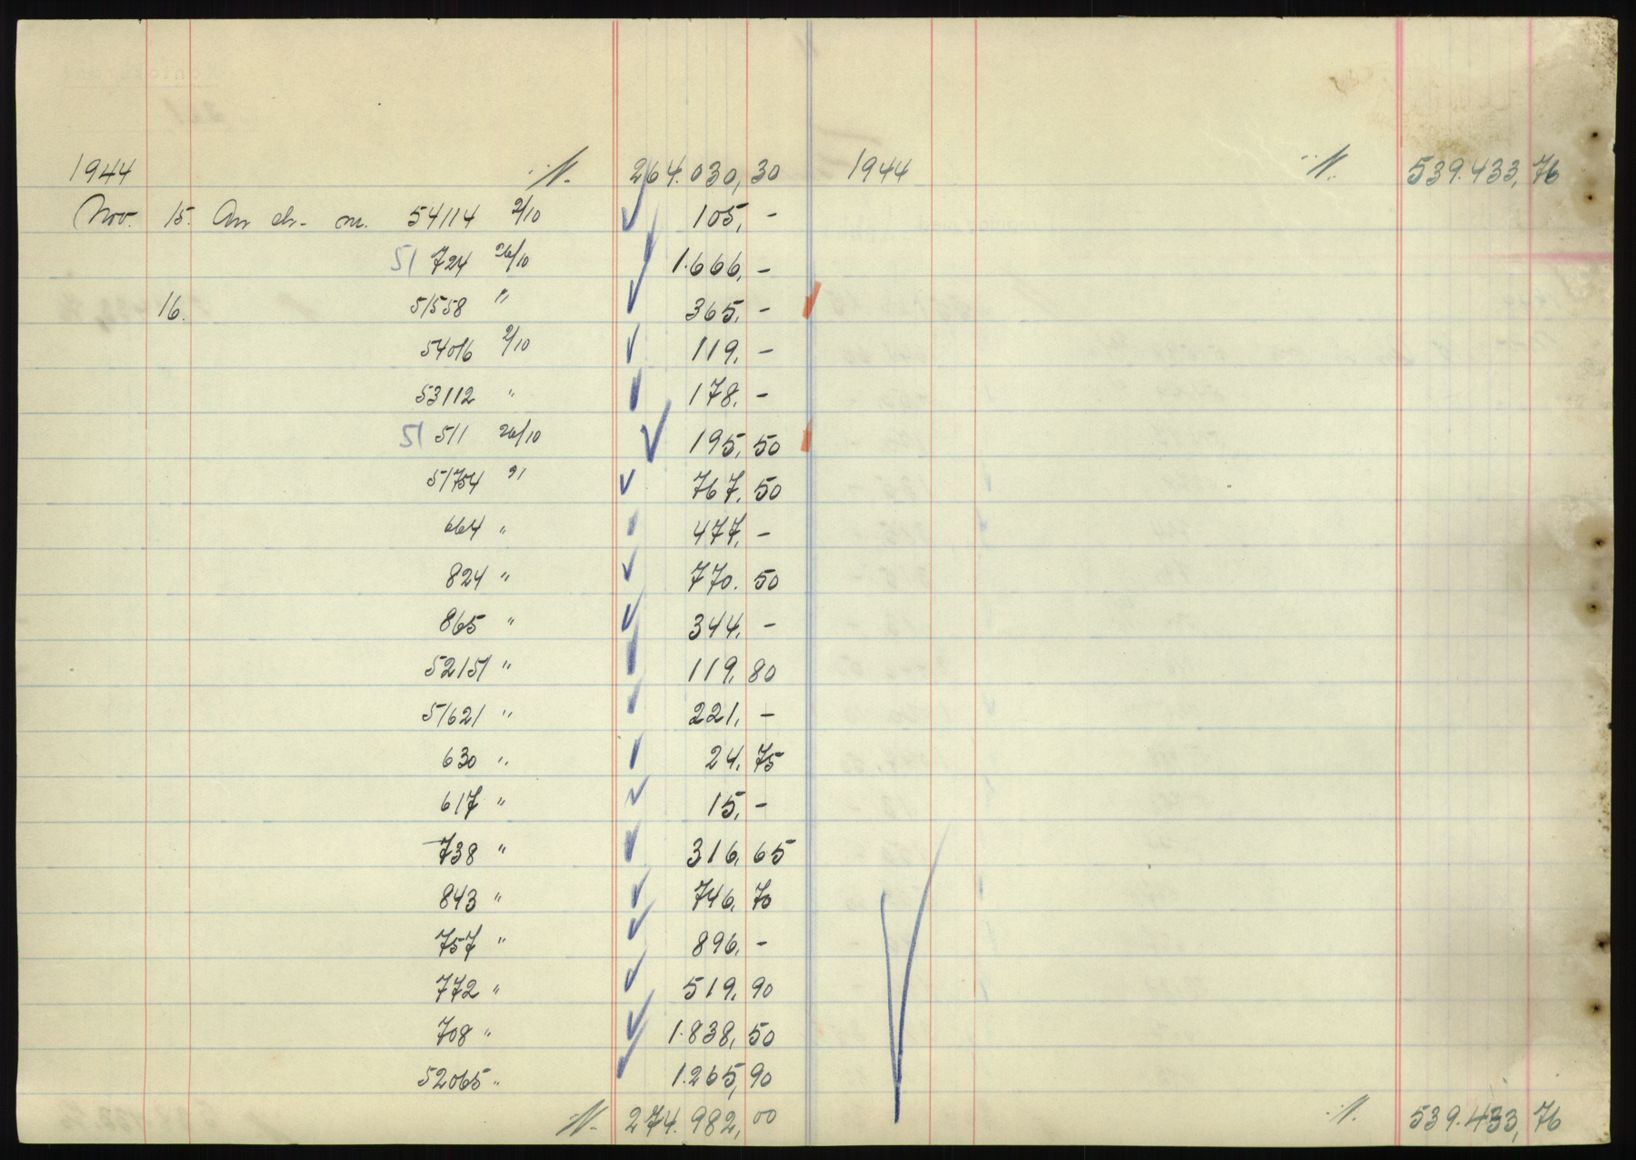 1944 ·/. 264.030,30
Nov. 15. An ch. nr. 54114 2/10 105,-
51 724 26/10 1.666,-
16. 51558 " 365,-
54016 2/10 119,-
53112 " 178,-
51 511 26/10 195,50
51754 21 767,50
664 " 477,-
824 " 770.50
865 " 344,-
52151 " 119,80
51621 " 221,-
630 " 24,75
617 " 15,-
738 " 316,65
843 " 746,70
757 " 896,-
772 " 519,90
708 " 1.838,50
52065 " 1.265,90
274.982,00
1944 539.433,76
539.433,76